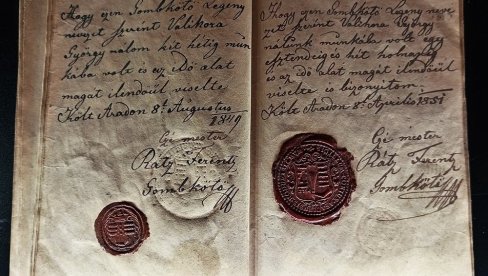 Hogy ezen Gombkötö Legeny
nevezet szerint Valihora
György nalom hit hétig mun
kába volt es az idö alat
magát ilendöül viselte
Költ Aradon 8t Augustus
1849
Cé mester
Rátz Ferentz
Gombkötö
Hogy ezen Gombkötö Legeny neve
zet szerint Valihora György
nálunk munkába volt egy
esztendeig és hét holnapig
es az idö alat magát ilendöül
viselte is bizonyitom.
Költ Aradon 8t Aprilis 1851
Cé mester
Rátz Ferentz
Gombkötö